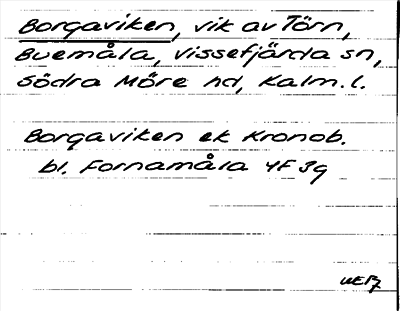 Borgaviken, vik av Törn,
Buemåla, Vissefjärda sn,
Södra Möre hd, Kalm. l.
Borgaviken ek Kronob.
bl. Fornamåla 4F 3g